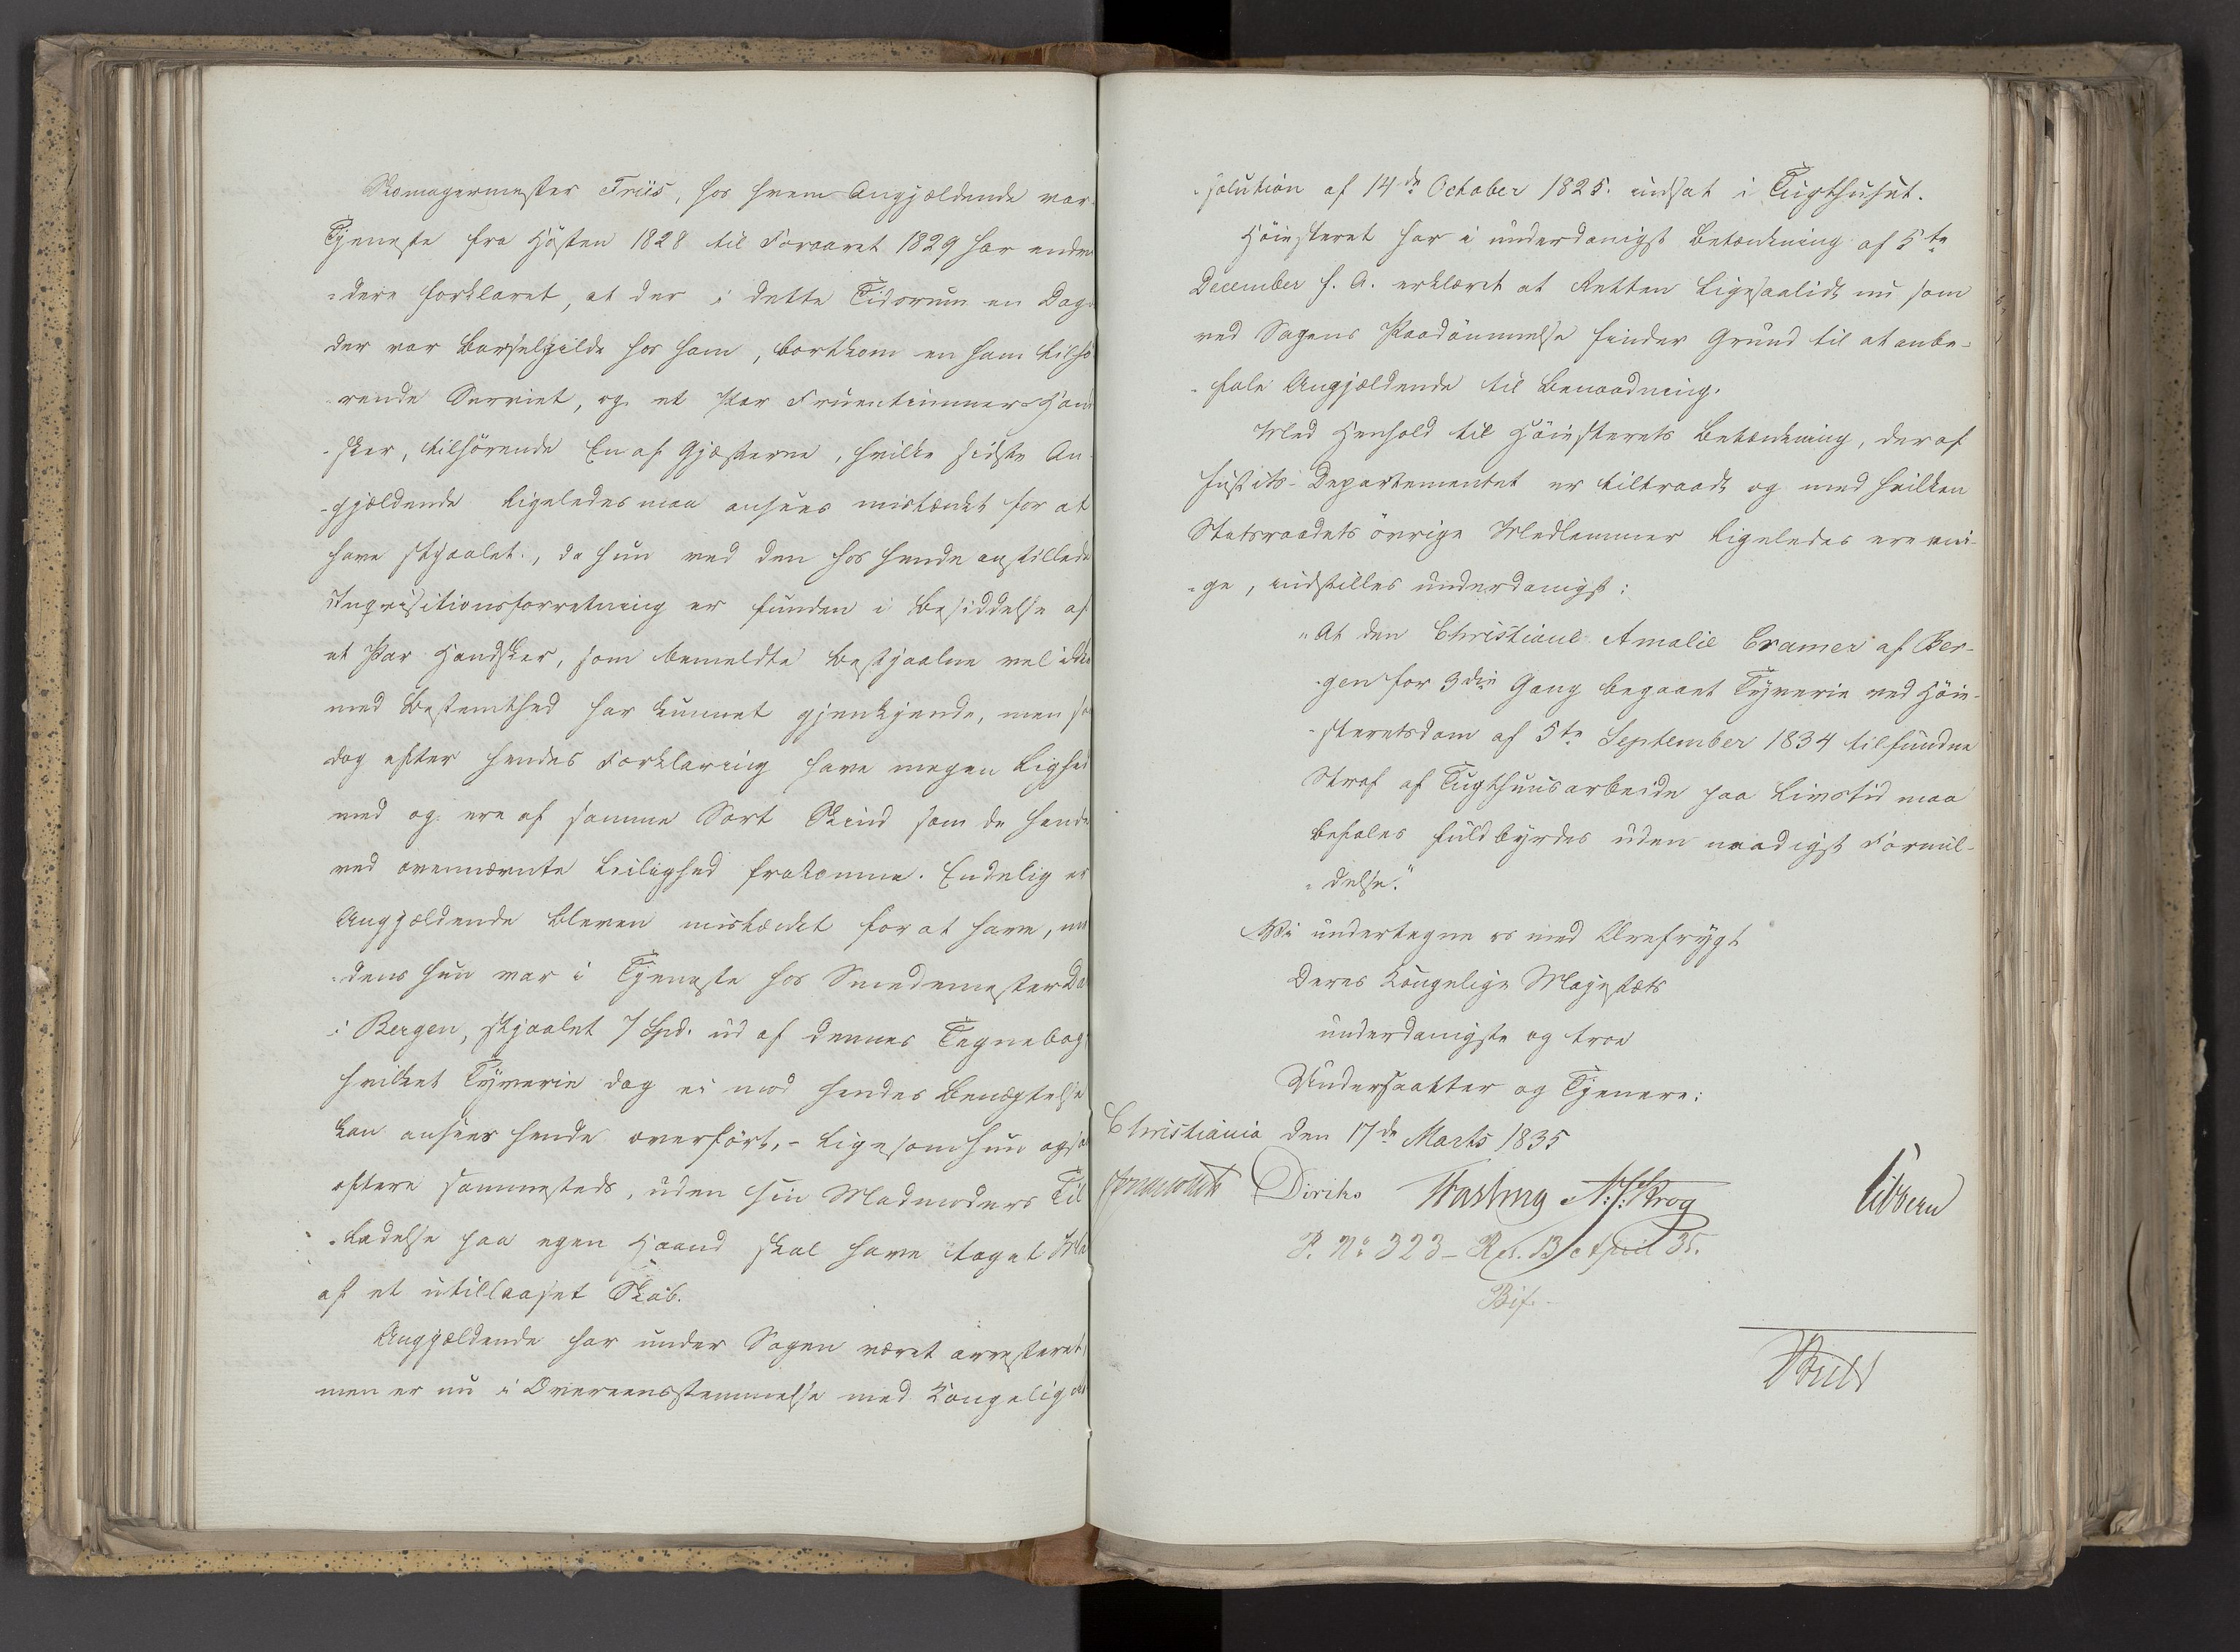 Skomagermester Friis, hos hvem Angjældende var
Tjeneste fra Høsten 1828 til Foraaret 1829 har endvi-
-dere forklaret, at der i dette Tidsrum en Dag,
der var Barselgilde hos ham, bortkom en ham tilhø-
-rende Serviet, og et Par Fruentimmer-Hand
-sker, tilhørende En af Gjæsterne, hvilke sidste An-
-gjældende ligeledes maa ansees mistænkt for at
have stjaalet, da hun ved den hos hende anstillede
Inqvisitionsforretning er funden i Besiddelse af
et Par Handsker, som bemeldte Bestjaalne vel ikke
med Bestemthed har kunnet gjenkjende, men so
dog efter hendes Forklaring have megen Lighed
med og ere af samme Sort Skind som de hende
ved ovennævnte Leilighed frakomne. Endelig er
Angjældende bleven mistænkt for at have, me
-dens hun var i Tjeneste hos Smedemester Da
i Bergen, stjaalet 7 Spd. ud af dennes Tegnebog,
hvilket Tyverie dog ei mod hendes Benægtelse
kan ansees hende overført, - ligesom hun ogsaa
oftere sammesteds, uden sin Madmoders Til
-ladelse paa egen Haand skal have taget
af et utillaaset Skab.
Angjældende har under Sagen været arresteret,
men er nu i Overeensstemmelse med Kongelig Re
-solution af 14de October 1825. indsat i Tugthuset.
Høiesteret har i underdanigst Betænkning af 5te
December f. A. erklæret at Retten ligesaalidt nu som
ved Sagens Paadømmelse finder Grund til at anbe-
-fale Angjældende til Benaadning.
Med Henhold til Høiesterets Betænkning, der af
Justits-Departementet er tiltraadt og med hvilken
Statsraadets øvrige Medlemmer ligeledes ere eni-
-ge, indstilles underdanigst:
"At den Christiane Amalie Cramer af Ber-
-gen for 3die Gang begaaet Tyverie ved Høie-
-steretsdom af 5te September 1834 tilfundne
Straf af Tugthuusarbeide paa Livstid maa
befales fuldbyrdes uden naadigst Formil-
-delse."
Vi undertegne os med Ærefrygt
Deres Kongelige Majestæts
underdanigste og troe
Undersaatter og Tjenere:
Christiania den 17de Marts 1835
Diriks Fasting N: J: Krog Vibe
P. No 323 - Res. 13 April 35.
Bif. -